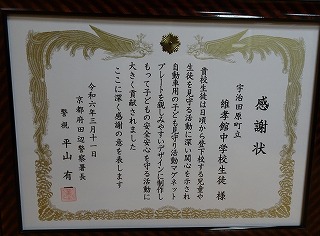 感謝状
宇治田原町立
維孝館中学校生徒 様
貴校生徒は日頃から登下校する児童や
生徒を見守る活動に深い関心を示され
自動車用の子ども見守り活動マグネット
プレートを親しみやすいデザインに制作し
もって子どもの安全安心を守る活動に
大きく貢献されました
ここに深く感謝の意を表します
令和六年三月十一日
京都府田辺警察署長
警視 平山 有